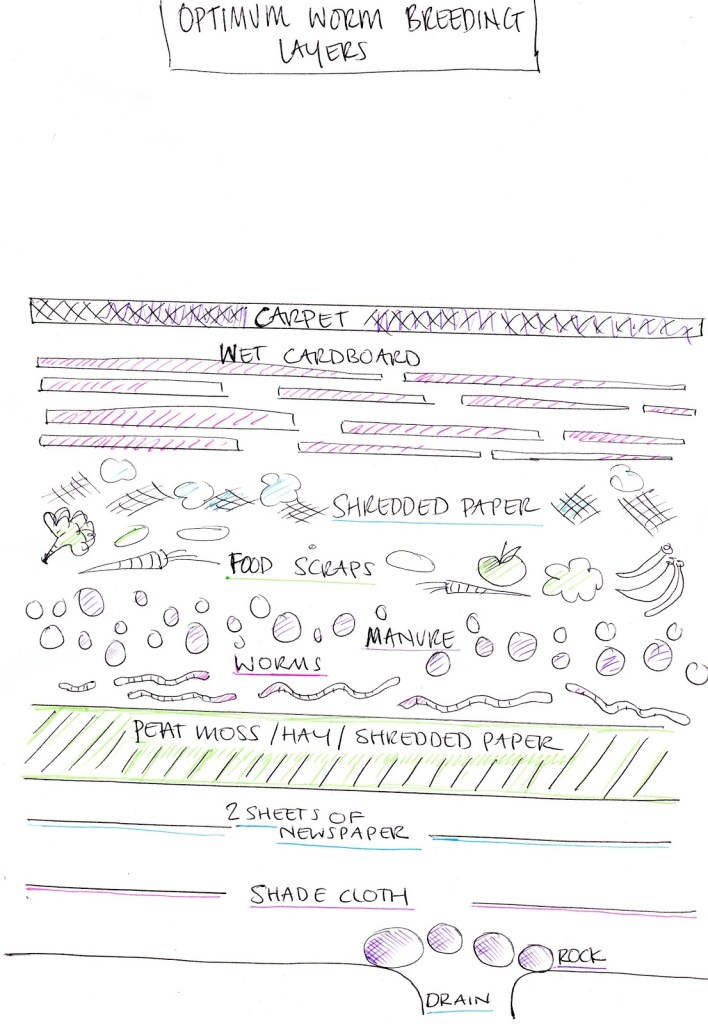 OPTIMUM WORM BREEDING
LAYERS
CARPET
WET CARDBOARD
SHREDDED PAPER
FOOD SCRAPS
MANURE
WORMS
PEAT MOSS / HAY / SHREDDED PAPER
2 SHEETS OF
NEWSPAPER
SHADE CLOTH
ROCK
DRAIN